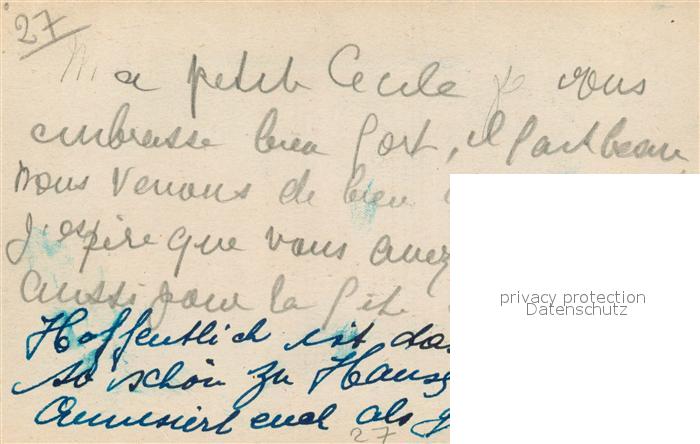 27
Ma petite Cecile je vous
embrasse bien fort, il fait beau
nous venons de bien
j'espère que vous avez
aussi pour la fête
privacy protection
Datenschutz
Hoffentlich ist das
so schön zu Hause
Amusiert euch als g
27